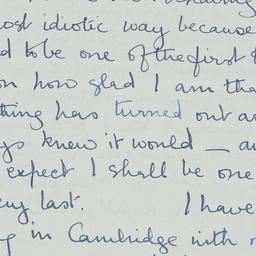 ost idiotic way because
d to be one of the first
on how glad I am tha
thing has turned out a
ys knew it would — a
expect I shall be one
ery last. I have
g in Cambridge with